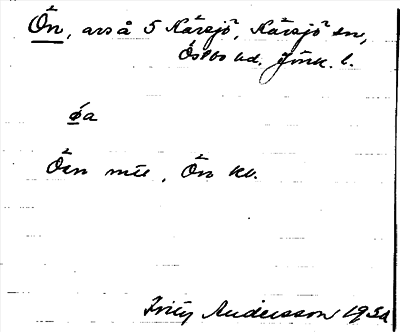 Ön, avs å 5 Kärsjö, Kärsjö sn,
Östbo hd. Jönk. l.
øa
Öen mtl, Ön kv.
Fritz Andersson 1932